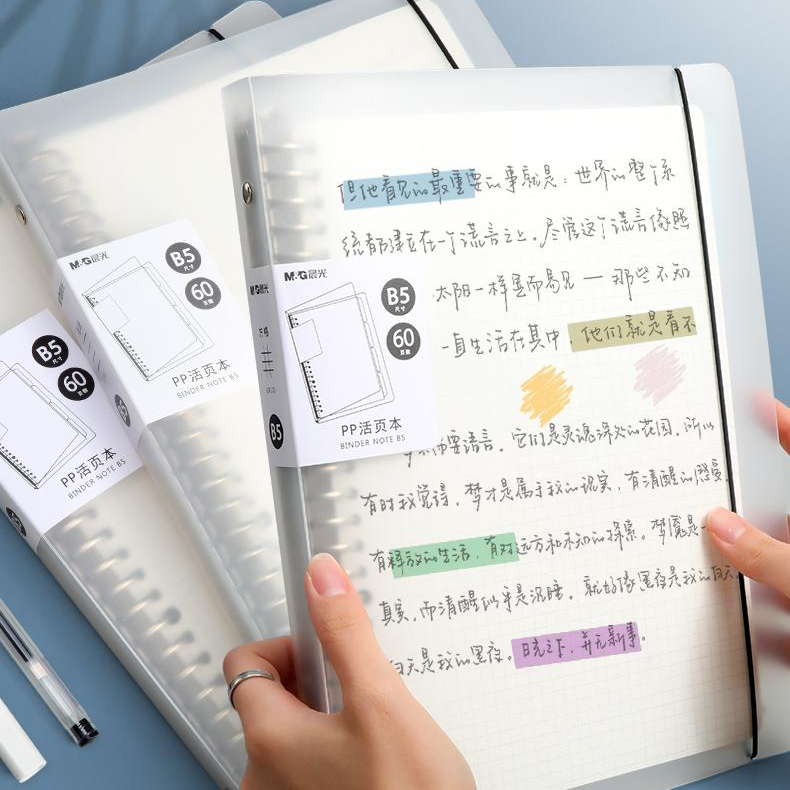 但他看见的最重要的事就是：世界的整个系
统都建立在一个谎言之上，尽管这个谎言
太阳一样显而易见——那些不知
一直生活在其中，他们就是看不
不需要语言，它们是灵魂深处的花园，所以
有时我觉得，梦才是属于我的现实，有清醒的感受，
有释放的生活，有对远方和未知的探索。梦魇是一
真实，而清醒似乎是沉睡，就好像黑夜是我的白天，
白天是我的黑夜。日光之下，并无新事。
M&G晨光
B5
尺寸
60
PP活页本
BINDER NOTE B5
M&G晨光
B5
M&G晨光
B5
尺寸
60
PP活页本
BINDER NOTE B5
B5
尺寸
60
PP活页本
BINDER NOTE B5